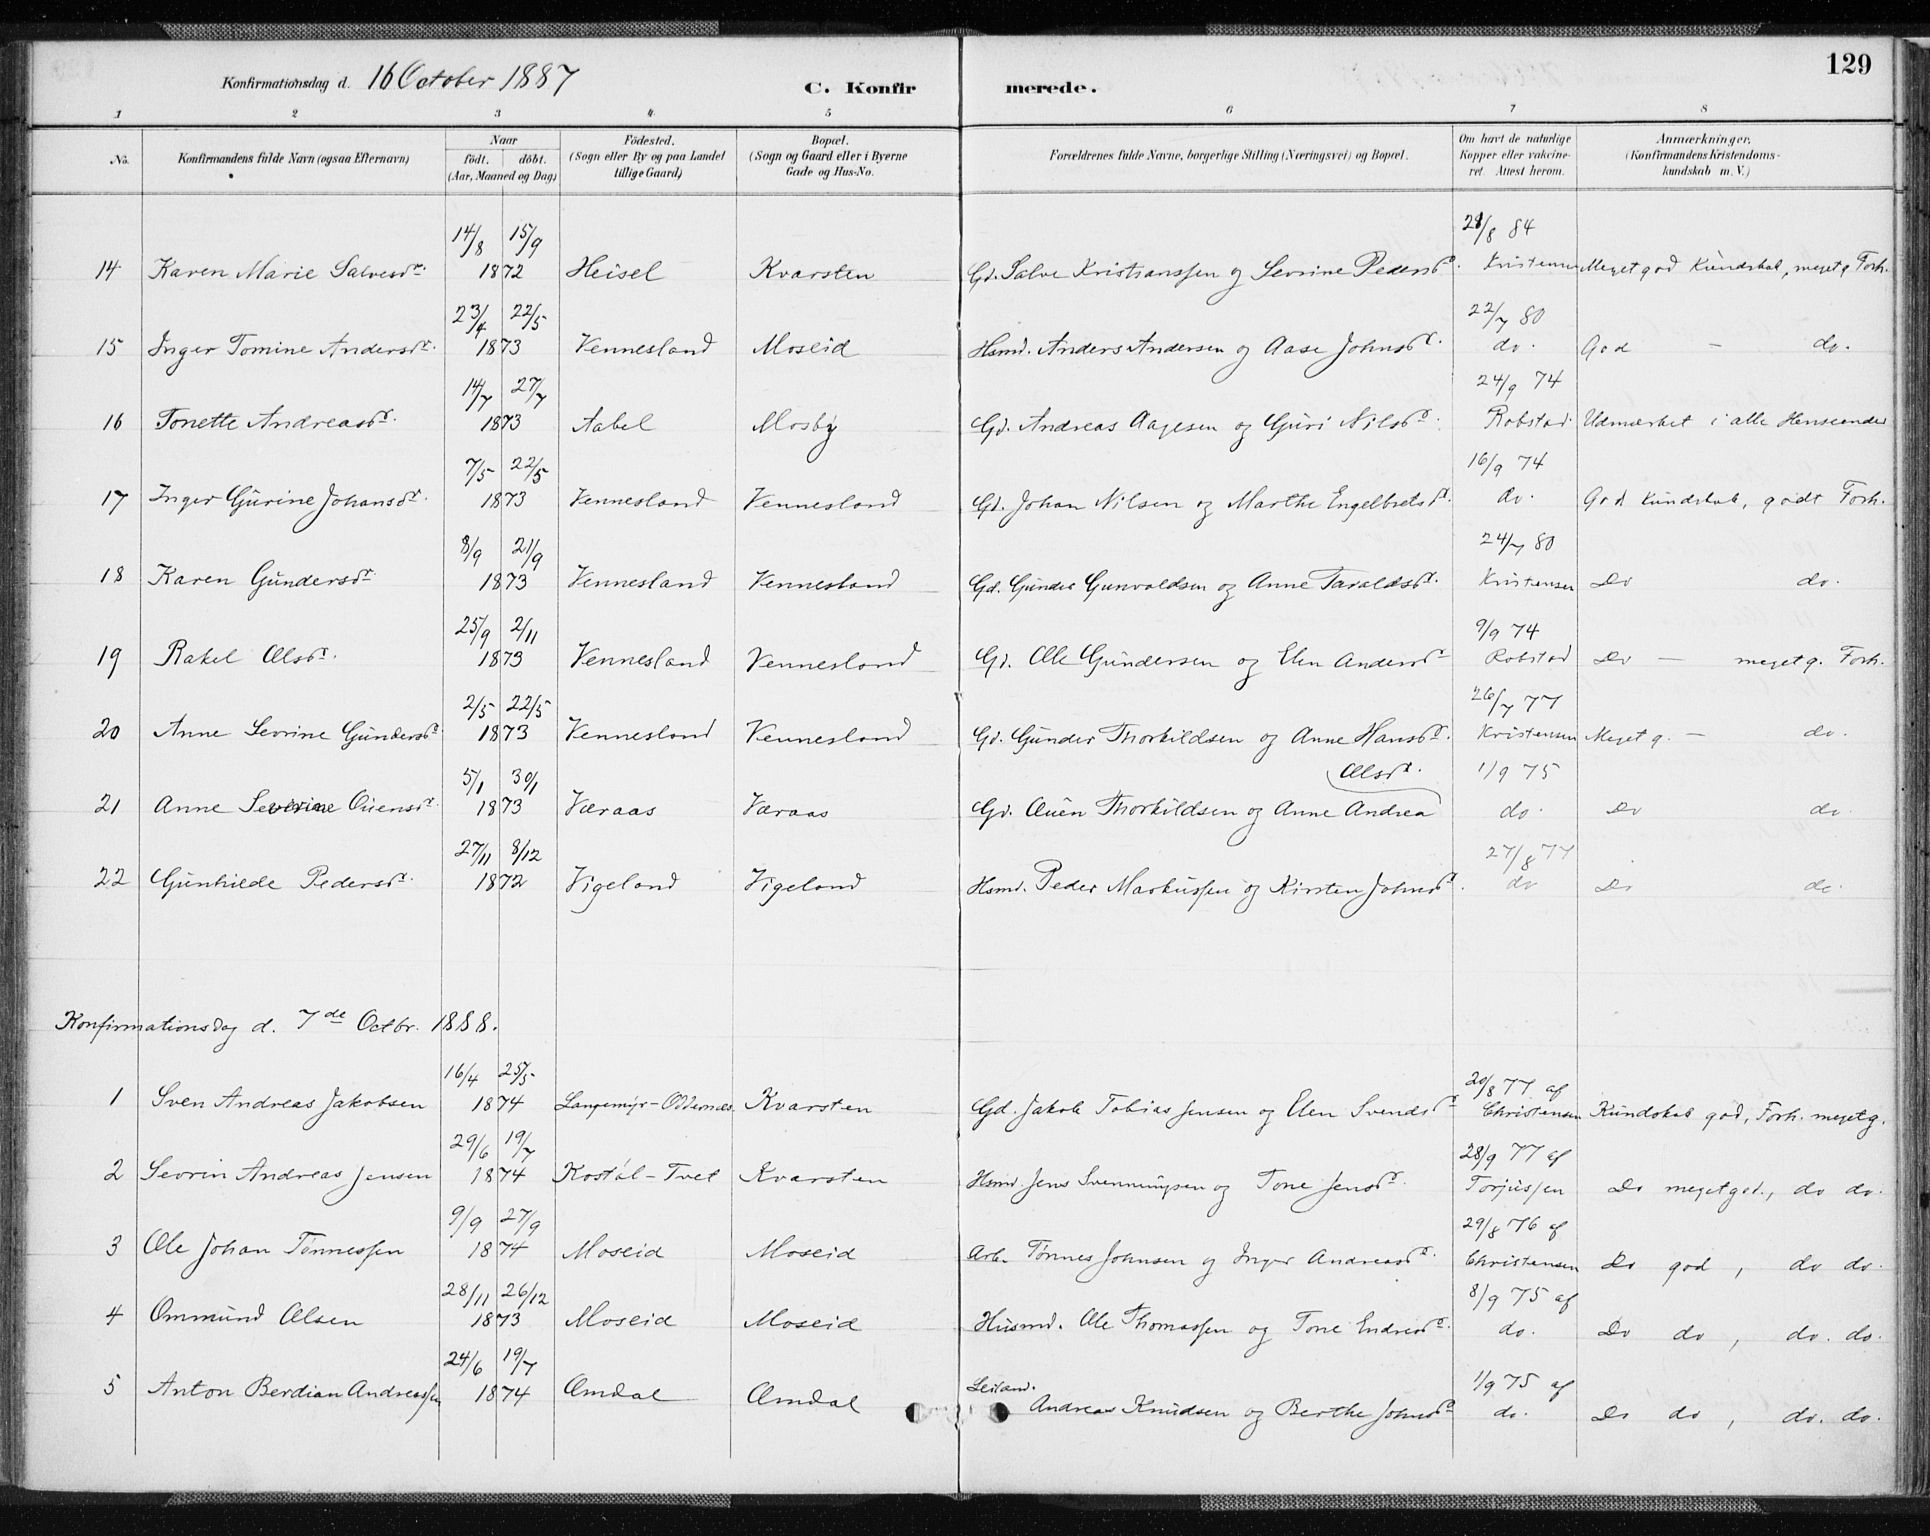 129
Konfirmationsdag d. 16 October 1887
C. Konfirmerede.
1 2 3 4 5 6 7 8
No.
Konfirmandens fulde Navn (ogsaa Efternavn)
Naar
født. døbt.
(Aar, Maaned og Dag)
Fødested.
(Sogn eller By og paa Landet
tillige Gaard)
Bopæl.
(Sogn og Gaard eller i Byerne
Gade og Hus-No.
Forældrenes fulde Navne, borgerlige Stilling (Næringsvei) og Bopæl.
Om havt de naturlige
Kopper eller vakcine-
ret. Attest herom.
Anmærkninger.
(Konfirmandens Kristendoms-
kundskab m. V.)
14/8 15/9 28/8 84
14 Karen Marie Salvesdr. 1872 Heisel Kvarsten Gd. Salve Kristianssen og Sevrine Pedersdr. Kristensen Meget god Kundskab, meget g. Forh.
23/4 22/5 22/7 80
15 Inger Tomine Andersdr. 1873 Vennesland Moseid Hsmd. Anders Andersen og Aase Johnsdr. do. God — do.
14/7 27/7 24/9 74
16 Tonette Andreasdr. 1873 Aabel Mosby Gd. Andreas Aagesen og Guri Nilsdr. Robstad Udmærket i alle Henseender
7/5 22/5 16/9 74
17 Inger Gurine Johansdr. 1873 Vennesland Vennesland Gd. Johan Nilsen og Marthe Engelbretsdr. do. God Kundskab, godt Forh.
8/9 21/9 24/7 80
18 Karen Gundersdr. 1873 Vennesland Vennesland Gd. Gunder Gunvaldsen og Anne Taraldsdr. Kristensen Do do.
25/9 2/11 9/9 74
19 Rakel Olsdr. 1873 Vennesland Vennesland Gd. Ole Gundersen og Elen Andersdr Robstad Do — meget g. Forh.
2/5 22/5 26/7 77
20 Anne Sevrine Gundersdr 1873 Vennesland Vennesland Gd. Gunder Thorkildsen og Anne Hansdr. Kristensen Meget g. — do.
5/1 30/1 Olsdr. 1/9 75
21 Anne Severine Ouensdr. 1873 Væraas Væraas Gd. Ouen Thorkildsen og Anne Andrea do. Do do.
27/11 8/12 27/8 77
22 Gunhilde Pedersdr. 1872 Vigeland Vigeland Hsmd. Peder Markussen og Kirsten Johnsdr. do Do do.
Konfirmationsdag d. 7de Octbr. 1888.
16/4 25/5 20/8 77 af
1 Sven Andreas Jakobsen 1874 Langemyr-Oddernæs. Kvarsten Gd. Jakob Tobias Jensen og Elen Svendsdr Christensen Kundskab god, Forh. meget g.
29/6 19/7 28/9 77 af
2 Sevrin Andreas Jensen 1874 Kostøl-Tvet Kvarsten Hsmd. Jens Svenningsen og Tone Jensdr. Torjussen Do meget god, do do.
9/9 27/9 29/8 76 af
3 Ole Johan Tønnessen 1874 Moseid Moseid Arb. Tønnes Johnsen og Inger Andreasdr. Christensen Do god, do do.
28/11 26/12 8/9 75 af
4 Ommund Olsen 1873 Moseid Moseid Husmd. Ole Thomassen og Tone Endresdr. do. Do do, do. do.
24/6 19/7 Leiland. 1/9 75 af
5 Anton Berdian Andreassen 1874 Omdal Omdal Andreas Knudsen og Berthe Johnsdr do. Do do, do. do.